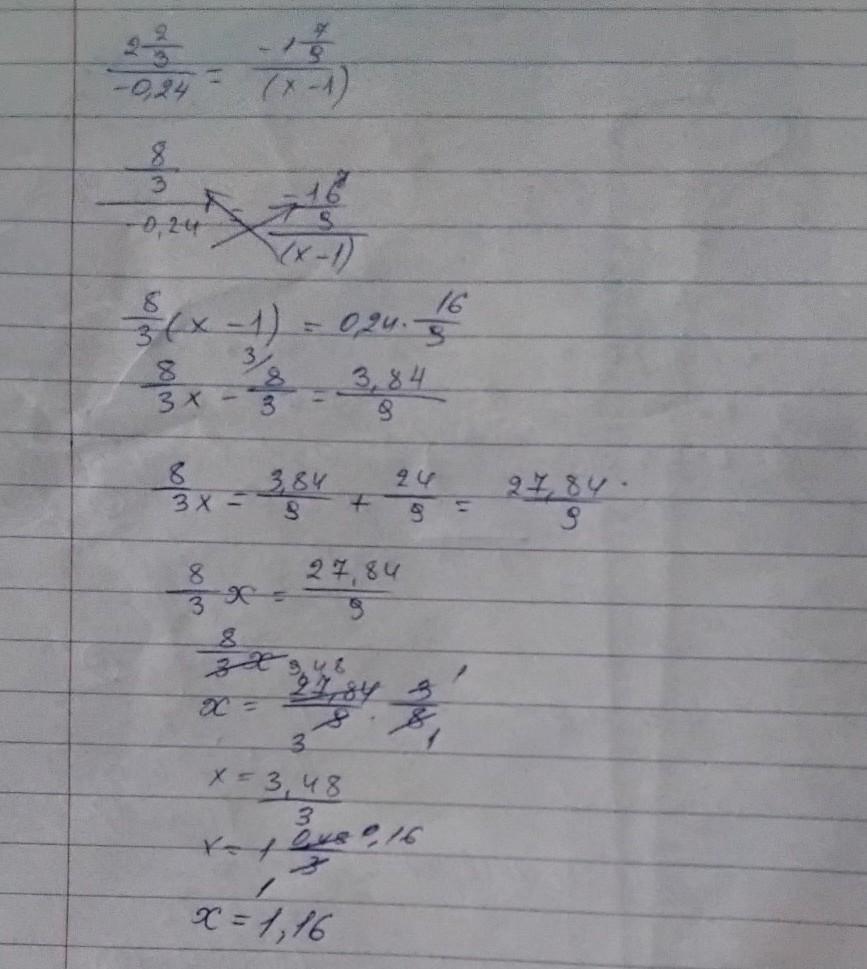 2 2/3 / -0,24 = -1 7/9 / (x-1)
8/3 / -0,24 = -16/9 / (x-1)
8/3 (x-1) = 0,24 · 16/9
8/3 x - 3/ 8/3 = 3,84/9
8/3 x = 3,84/9 + 24/9 = 27,84/9
8/3 x = 27,84/9
8/3 x
x = 27,84/9 · 3/8 3,48 1 3 1
x = 3,48/3
x = 1 0,48/3 0,16 1
x = 1,16